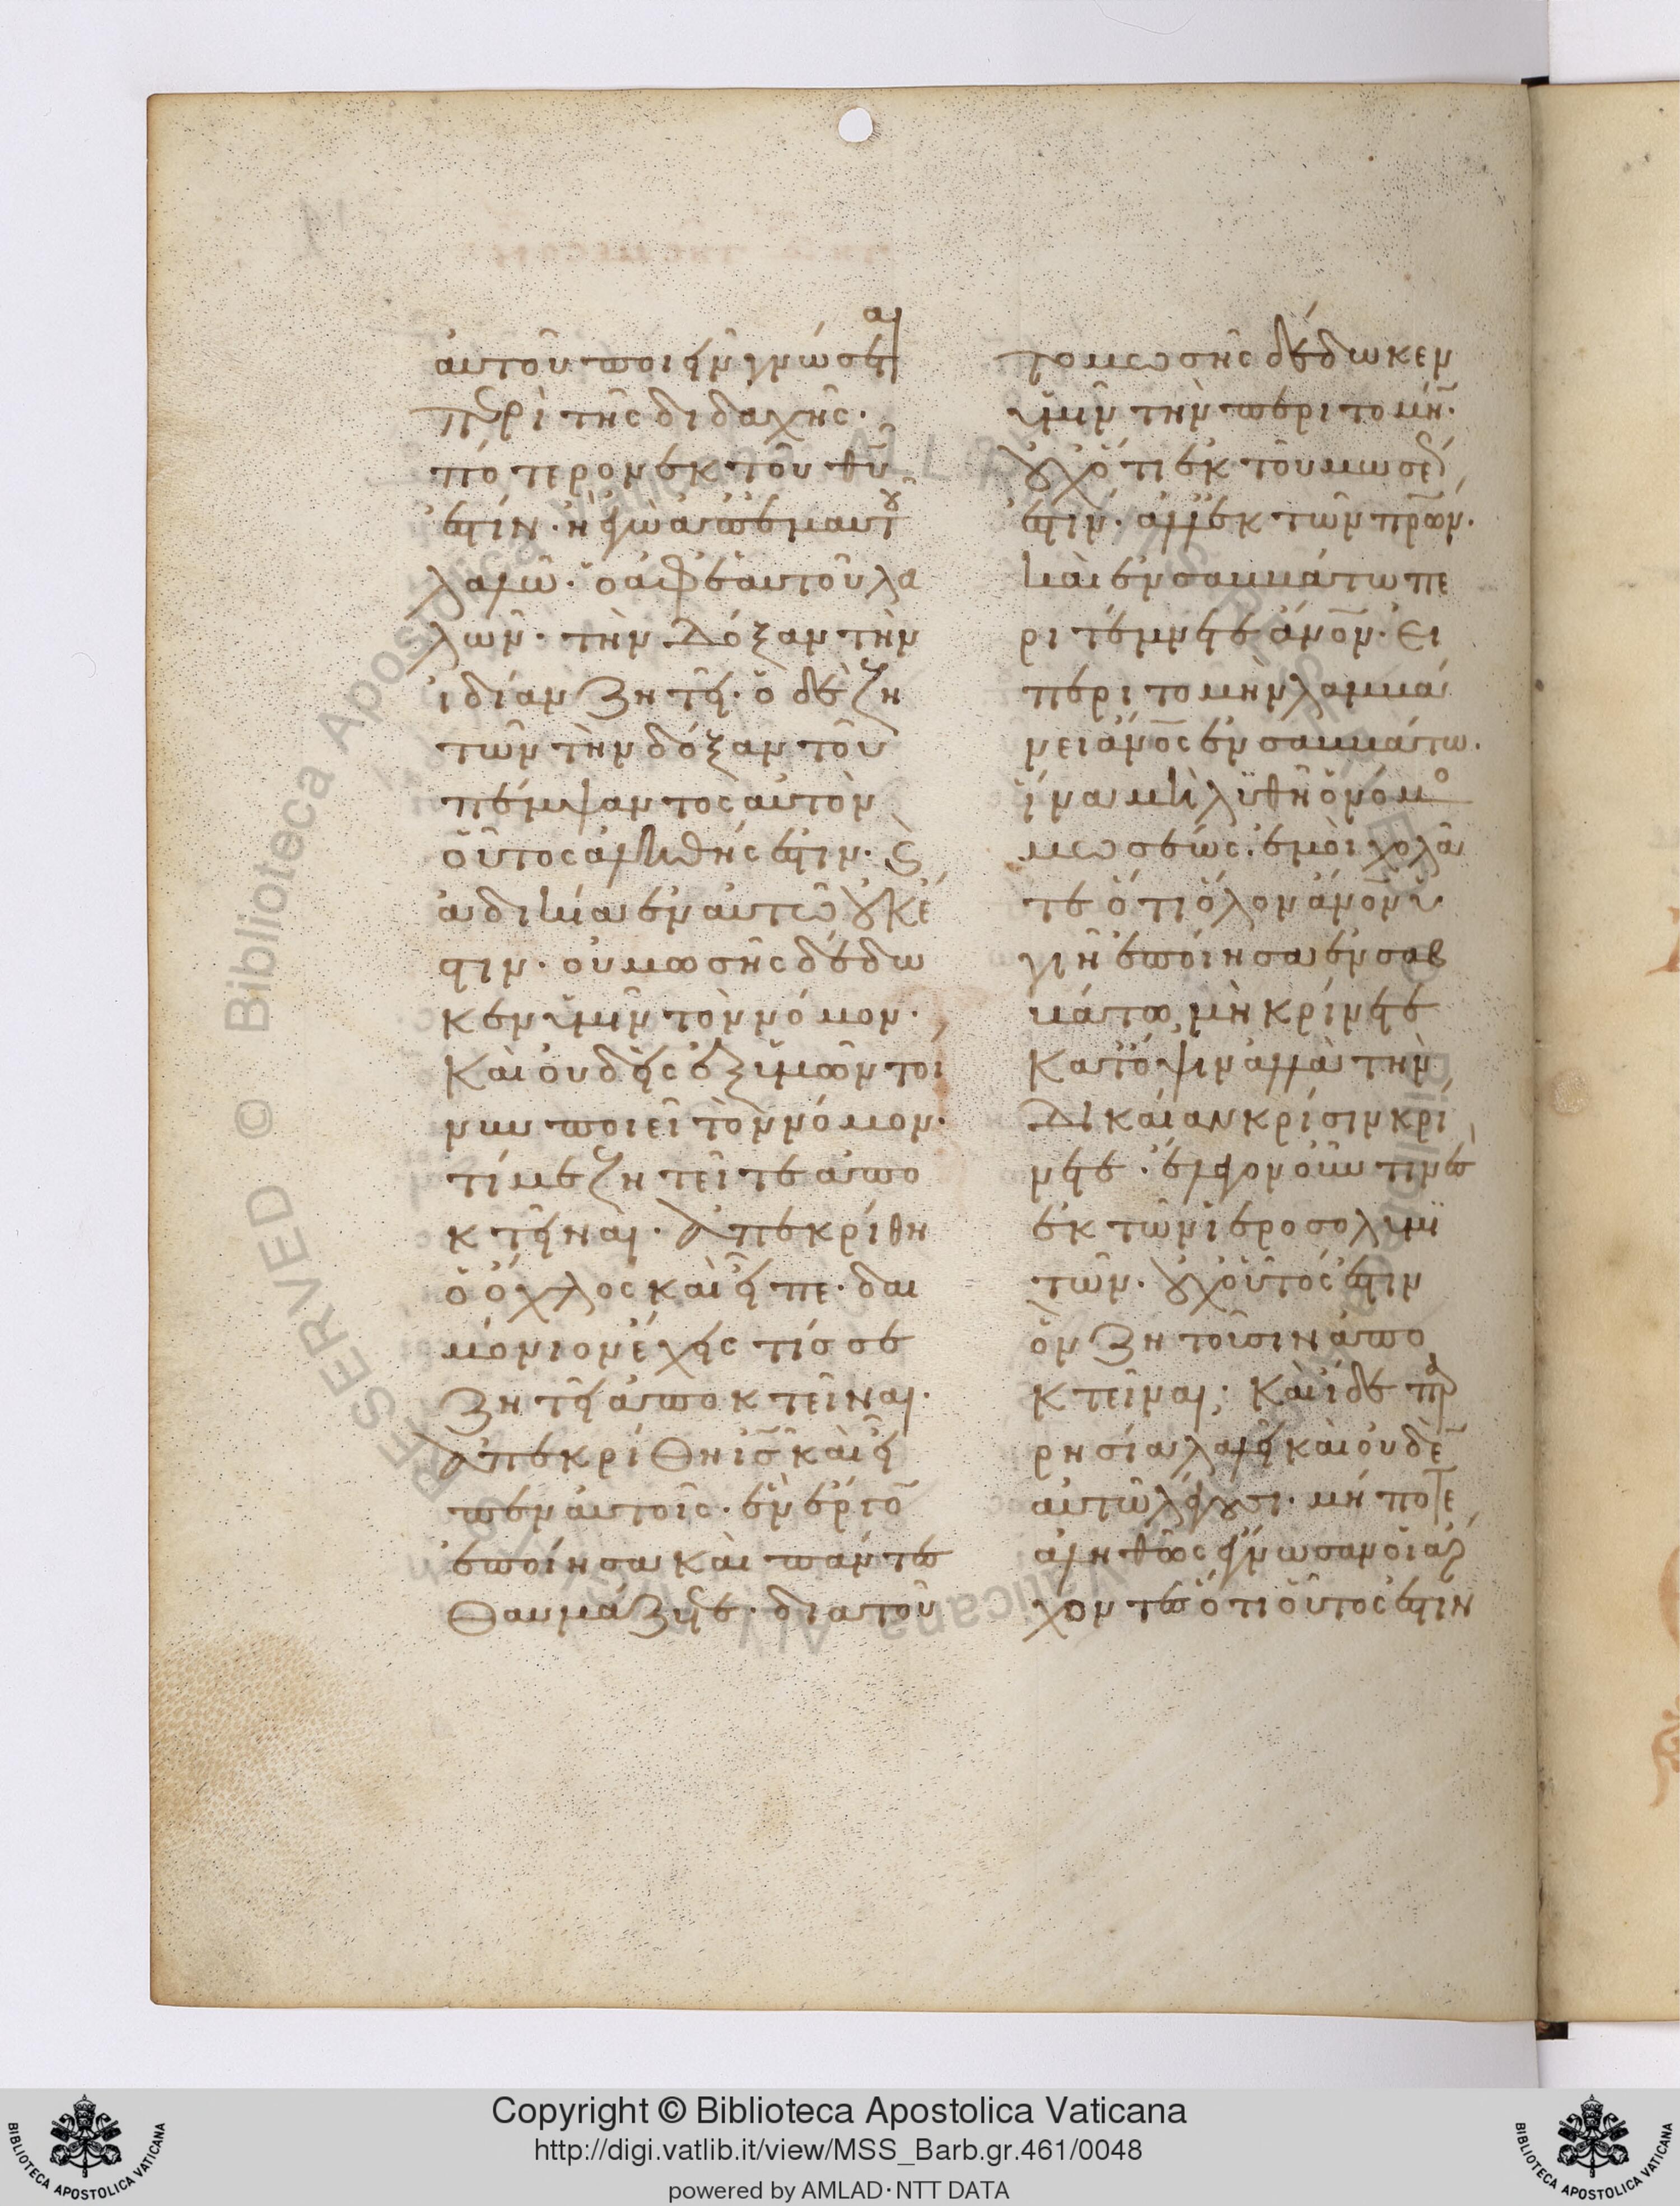 αὐτοῦ ποιεῖν γνώσεται
περὶ τῆς διδαχῆς·
πότερον ἐκ τοῦ θῦ
ἐστὶν· ἢ ἐγὼ ἀπ' ἐμαυτοῦ
λαλῶ· ὁ ἀφ' ἑαυτοῦ λα
λῶν· τὴν δόξαν τὴν
ἰδίαν ζητεῖ· ὁ δὲ ζη
τῶν τὴν δόξαν τοῦ
πέμψαντος αὐτὸν
οὗτος ἀληθής ἐστιν· καὶ
ἀδικία ἐν αὐτῶ οὐκ ἔ
στιν· οὐ μωσῆς δέδω
κεν ὑμῖν τὸν νόμον·
Καὶ οὐδεὶς ἐξ ὑμῶν τοι
νυν ποιεῖ τὸν νόμον·
τί με ζητεῖτε ἀπο
κτεῖναι· Ἀπεκρίθη
ὁ ὄχλος καὶ εἶπε· δαι
μόνιον ἔχεις τίς σε
ζητεῖ ἀποκτεῖναι·
Ἀπεκρίθη ἰς καὶ εἶ
πεν αὐτοῖς· ἓν ἔργον
ἐποίησα καὶ πάντες
θαυμάζετε· διατοῦ
το μωσῆς δέδωκεν
ὑμῖν τὴν περιτομήν·
οὐχ ὅτι ἐκ τοῦ μωσέως
ἐστιν· ἀλλ' ἐκ τῶν πρων·
καὶ ἐν σαββάτω πε
ριτέμνετε ἄνον· Εἰ
περιτομὴν λαμβά
νει ἄνος ἐν σαββάτω·
ἵνα μὴ λυθῆ ὁ νόμος
μωσέως· ἐμοὶ χολᾶ
τε ὅτι ὅλον ἄνον ὑ
γιῆ ἐποίησα ἐν σαβ
βάτω, μὴ κρίνετε
κατόψιν ἀλλὰ τὴν
δικαίαν κρίσιν κρί
νετε· ἔλεγον οὖν τινὲς
ἐκ τῶν ἱεροσολυμι
τῶν· οὐχ οὗτός ἐστιν
ὃν ζητοῦσιν ἀπο
κτεῖναι; Καὶ ἴδε παρ
ρησία λαλεῖ καὶ οὐδὲν
αὐτῶ λέγουσι· μήποτε
ἀληθῶς ἔγνωσαν οἱ ἄρ
χοντες ὅτι οὗτος ἐστιν
Copyright © Biblioteca Apostolica Vaticana
http://digi.vatlib.it/view/MSS_Barb.gr.461/0048
powered by AMLAD·NTT DATA